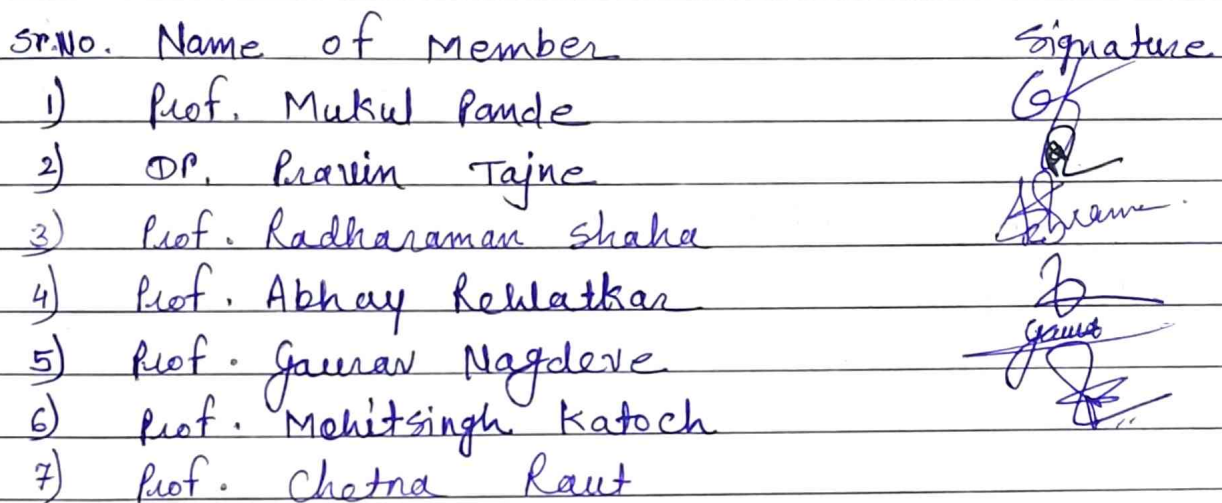 Sr.No. Name of Member Signature
1) Prof. Mukul Pande
2) Dr. Pravin Tajne
3) Prof. Radharaman Shaha
4) Prof. Abhay Rewatkar
5) Prof. Gaurav Nagdeve
6) Prof. Mohitsingh Katoch
7) Prof. Chetna Raut